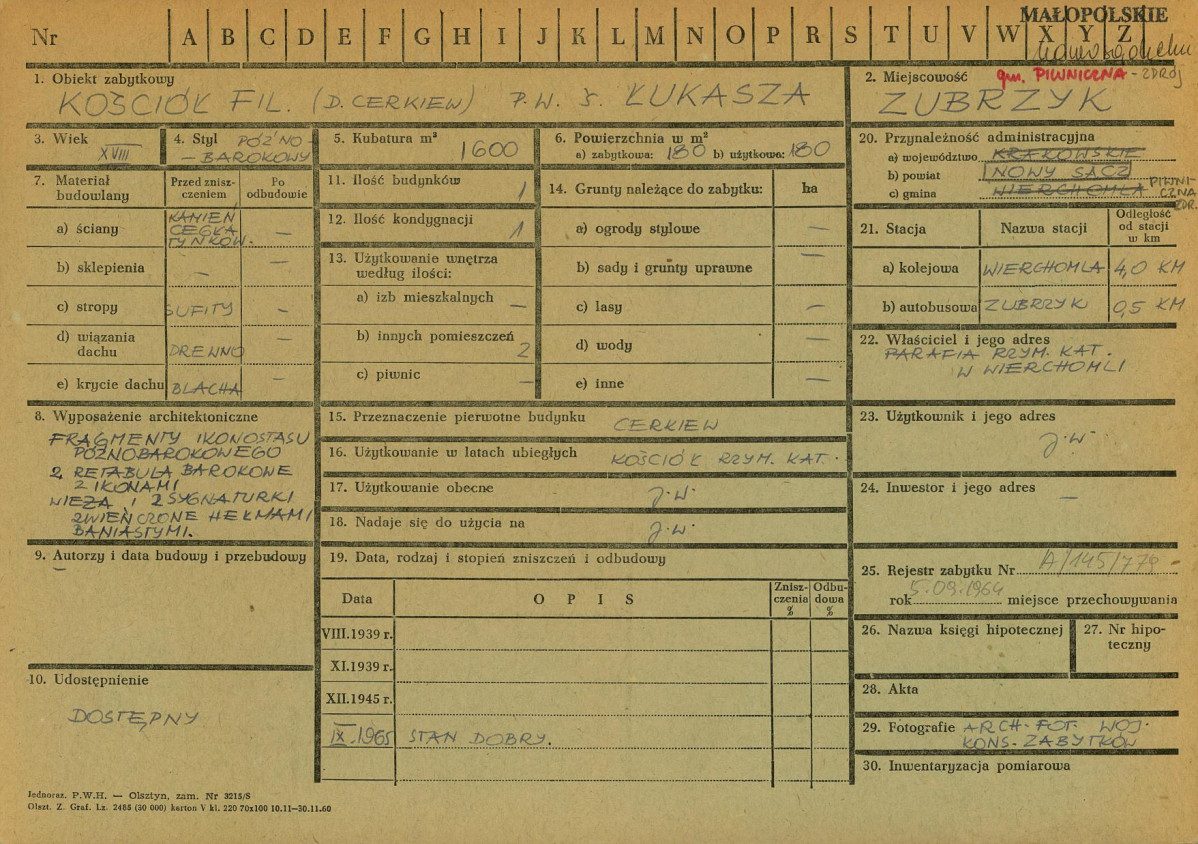 MAŁOPOLSKIE
Nr A B C D E F G H I J K L M N O P R S T U V W X Y Z
1. Obiekt zabytkowy
KOŚCIÓŁ FIL. (D. CERKIEW) P.W. Ś. ŁUKASZA
2. Miejscowość gm. PIWNICZNA - ZDRÓJ
ZUBRZYK
3. Wiek
XVIII
4. Styl PÓŹNO-
-BAROKOWY
5. Kubatura m³
1600
6. Powierzchnia w m²
a) zabytkowa: 180 b) użytkowa: 180
7. Materiał budowlany
Przed znisz-
czeniem
Po
odbudowie
a) ściany
KAMIEŃ
CEGŁA
TYNKOW.
—
b) sklepienia — —
c) stropy SUFITY —
d) wiązania
dachu DREWNO —
e) krycie dachu BLACHA —
8. Wyposażenie architektoniczne
FRAGMENTY IKONOSTASU
PÓŹNOBAROKOWEGO
2 RETABULA BAROKOWE
Z IKONAMI
WIEŻA I 2 SYGNATURKI
ZWIEŃCZONE HEŁMAMI
BANIASTYMI.
9. Autorzy i data budowy i przebudowy
—
10. Udostępnienie
DOSTĘPNY
11. Ilość budynków 1
12. Ilość kondygnacji 1
13. Użytkowanie wnętrza
według ilości:
a) izb mieszkalnych —
b) innych pomieszczeń 2
c) piwnic —
14. Grunty należące do zabytku: ha
a) ogrody stylowe —
b) sady i grunty uprawne —
c) lasy —
d) wody —
e) inne —
15. Przeznaczenie pierwotne budynku CERKIEW
16. Użytkowanie w latach ubiegłych KOŚCIÓŁ RZYM. KAT.
17. Użytkowanie obecne j.w.
18. Nadaje się do użycia na j.w.
19. Data, rodzaj i stopień zniszczeń i odbudowy
Data OPIS Znisz-
czenia
% Odbu-
dowa
%
VIII.1939 r.
XI.1939 r.
XII.1945 r.
IX.1965 STAN DOBRY.
20. Przynależność administracyjna
a) województwo KRAKOWSKIE
b) powiat NOWY SĄCZ
c) gmina WIERCHOMLA PIWNI-
CZNA
ZDR.
21. Stacja Nazwa stacji Odległość
od stacji
w km
a) kolejowa WIERCHOMLA 4,0 KM
b) autobusowa ZUBRZYK 0,5 KM
22. Właściciel i jego adres
PARAFIA RZYM. KAT.
W WIERCHOMLI
23. Użytkownik i jego adres
j.w.
24. Inwestor i jego adres
—
25. Rejestr zabytku Nr A/145/778
rok 5.09.1964 miejsce przechowywania
26. Nazwa księgi hipotecznej
27. Nr hipo-
teczny
28. Akta
29. Fotografie ARCH. FOT. WOJ.
KONS. ZABYTKÓW
30. Inwentaryzacja pomiarowa
Jednoraz. P.W.H. — Olsztyn, zam. Nr 3215/S
Olszt. Z. Graf. Lz. 2485 (30 000) karton V kl. 220 70x100 10.11—30.11.60